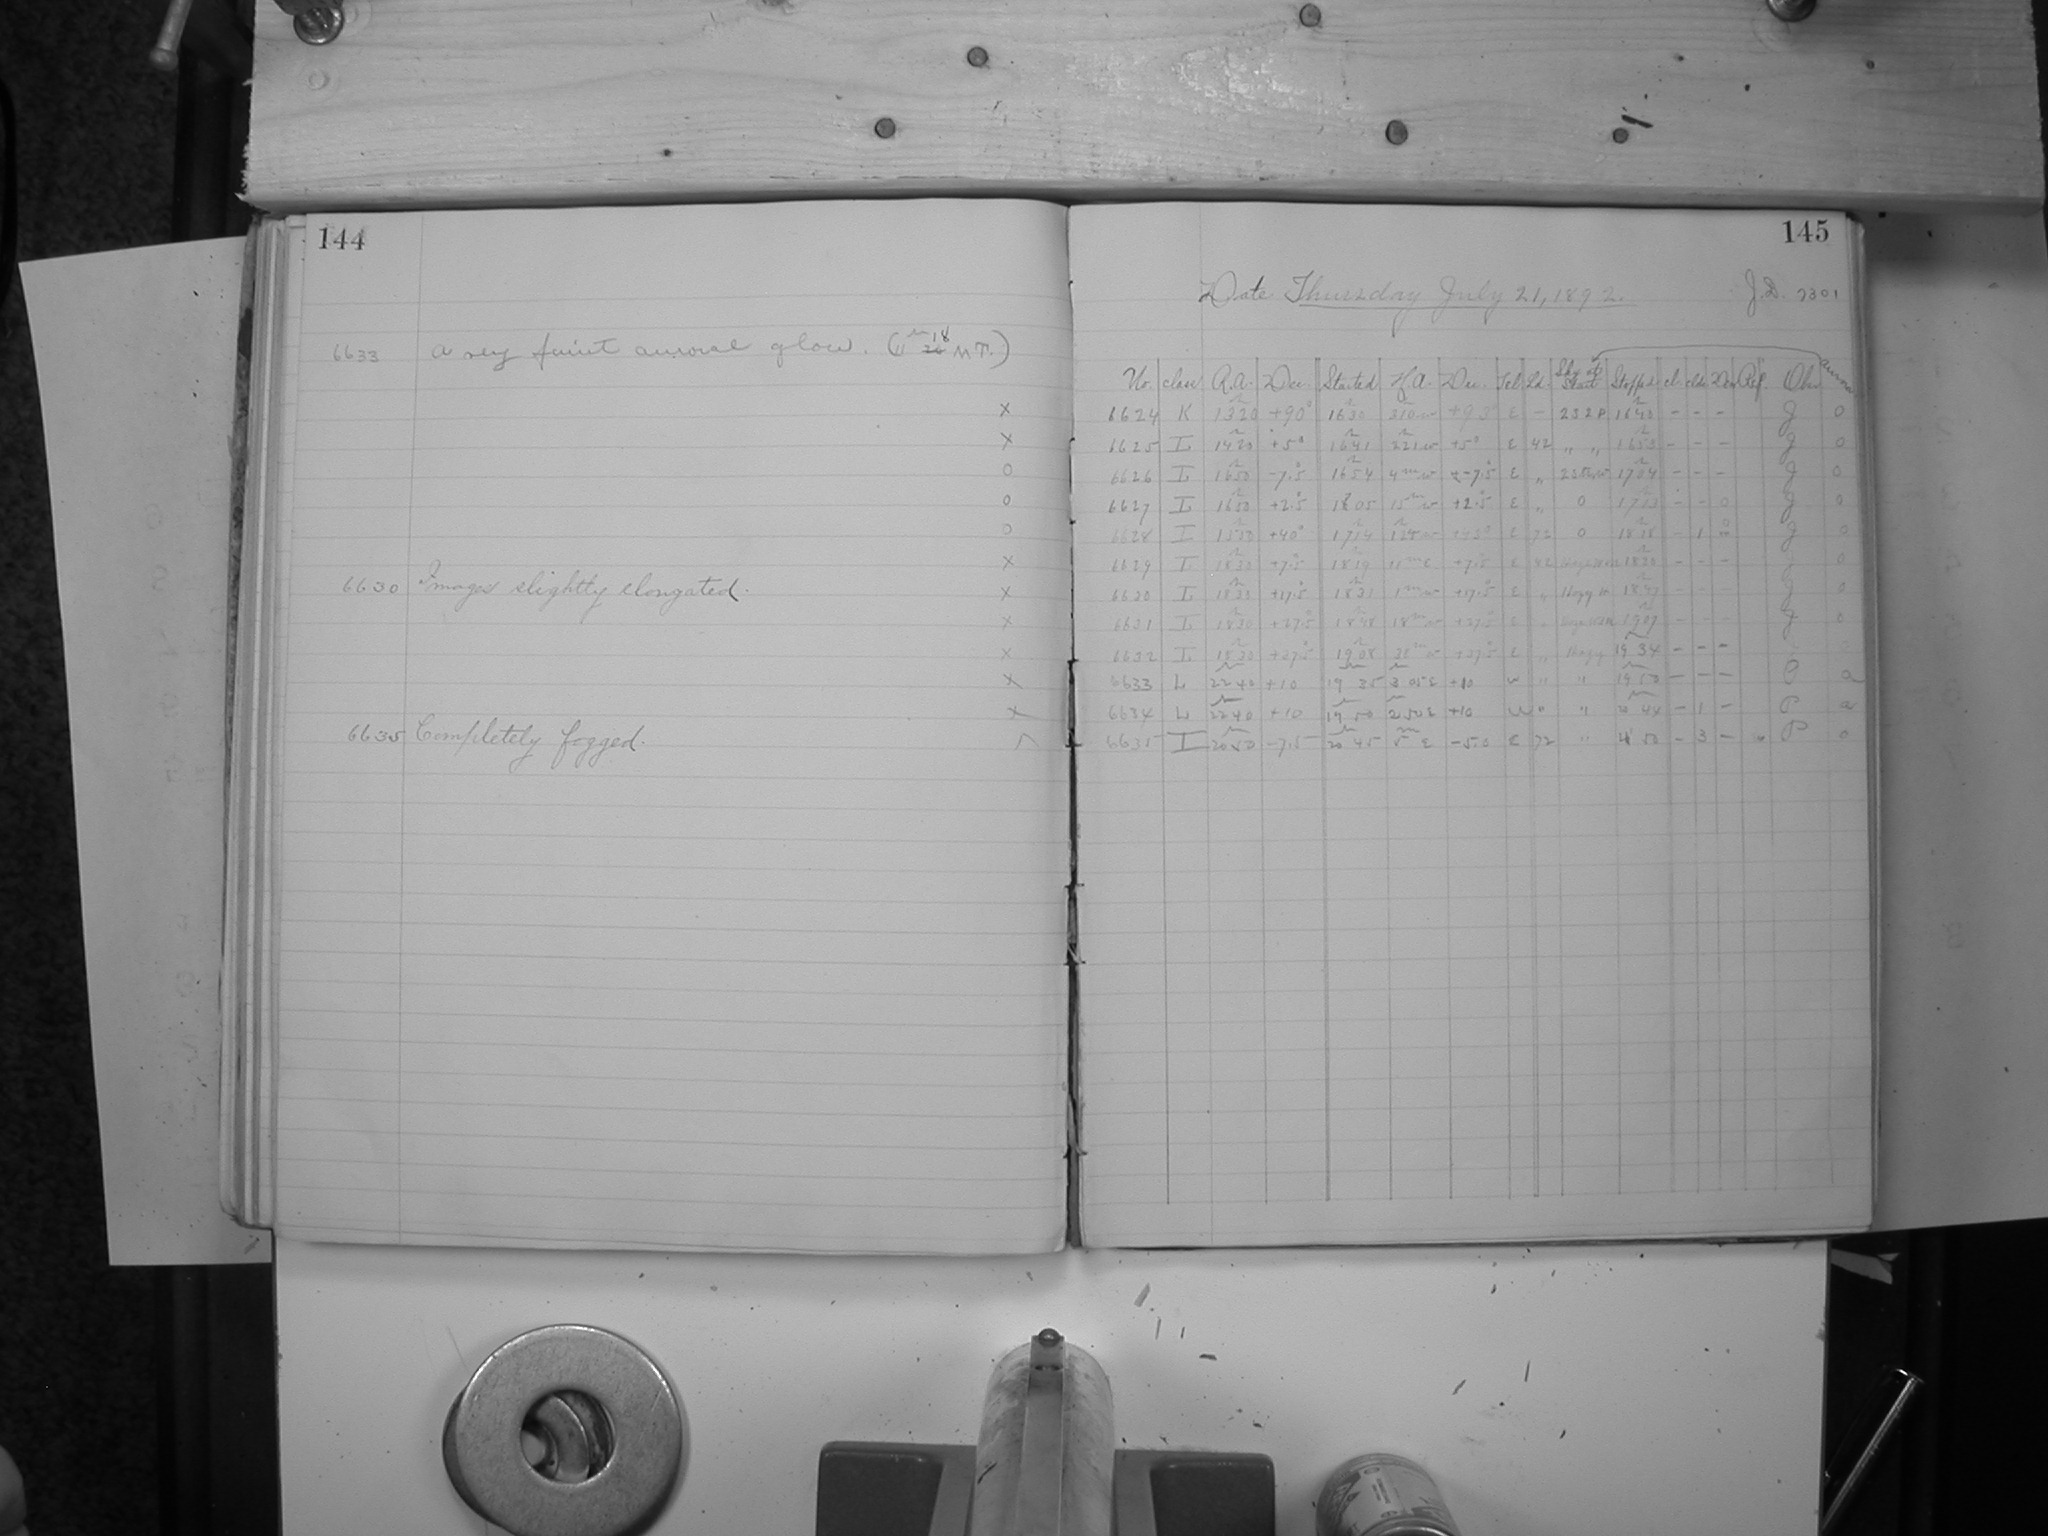 144
6633 a very faint auroral glow. (11h 18 M.T.)
x
x
o
o
o
x
6630 Images slightly elongated. x
x
x
x
x
6635 Completely fogged.
145
Date Thursday July 21, 1892.
J.D. 2301
No. class R.A. Dec. Started H.A. Dec. Tel Ld. Sky at Start Stopped cl. clds Dew Ref. Obs Aurora
6624 K 1320 +90° 1630 310 w E - 232P 1640 - - - J o
6625 I 1420 +5° 1641 221 w +5° E 42 " " 1653 - - - J o
6626 I 1650 -7.5 1654 4m w -7.5 E " 1704 - - - J o
6627 I 1650 +2.5 1705 15m w +2.5 E " o - - o J o
6628 I +40° 1714 E 72 o 1818 - 1 J o
6629 I 1830 +7.5 1819 11m E +7.5 E 42 1830 - - - o
6630 I 1830 +17.5 1831 1m w +17.5 E " Hazy 1847 - - - J o
6631 I 1830 +27.5 1848 18m w +27.5 E " 1907 - - - J o
6632 I 1830 +37.5 1908 38m w +37.5 E " Hazy 19 34 - - -
6633 L 22 40 +10 19 35 3 05 E +10 w " " 19 50 - - - P a
6634 L 2240 +10 19 50 2 50 E +10 w " " 20 44 - 1 - P a
6635 I 20 50 -7.5 20 45 5 E -5.0 E 72 " - 3 - P o